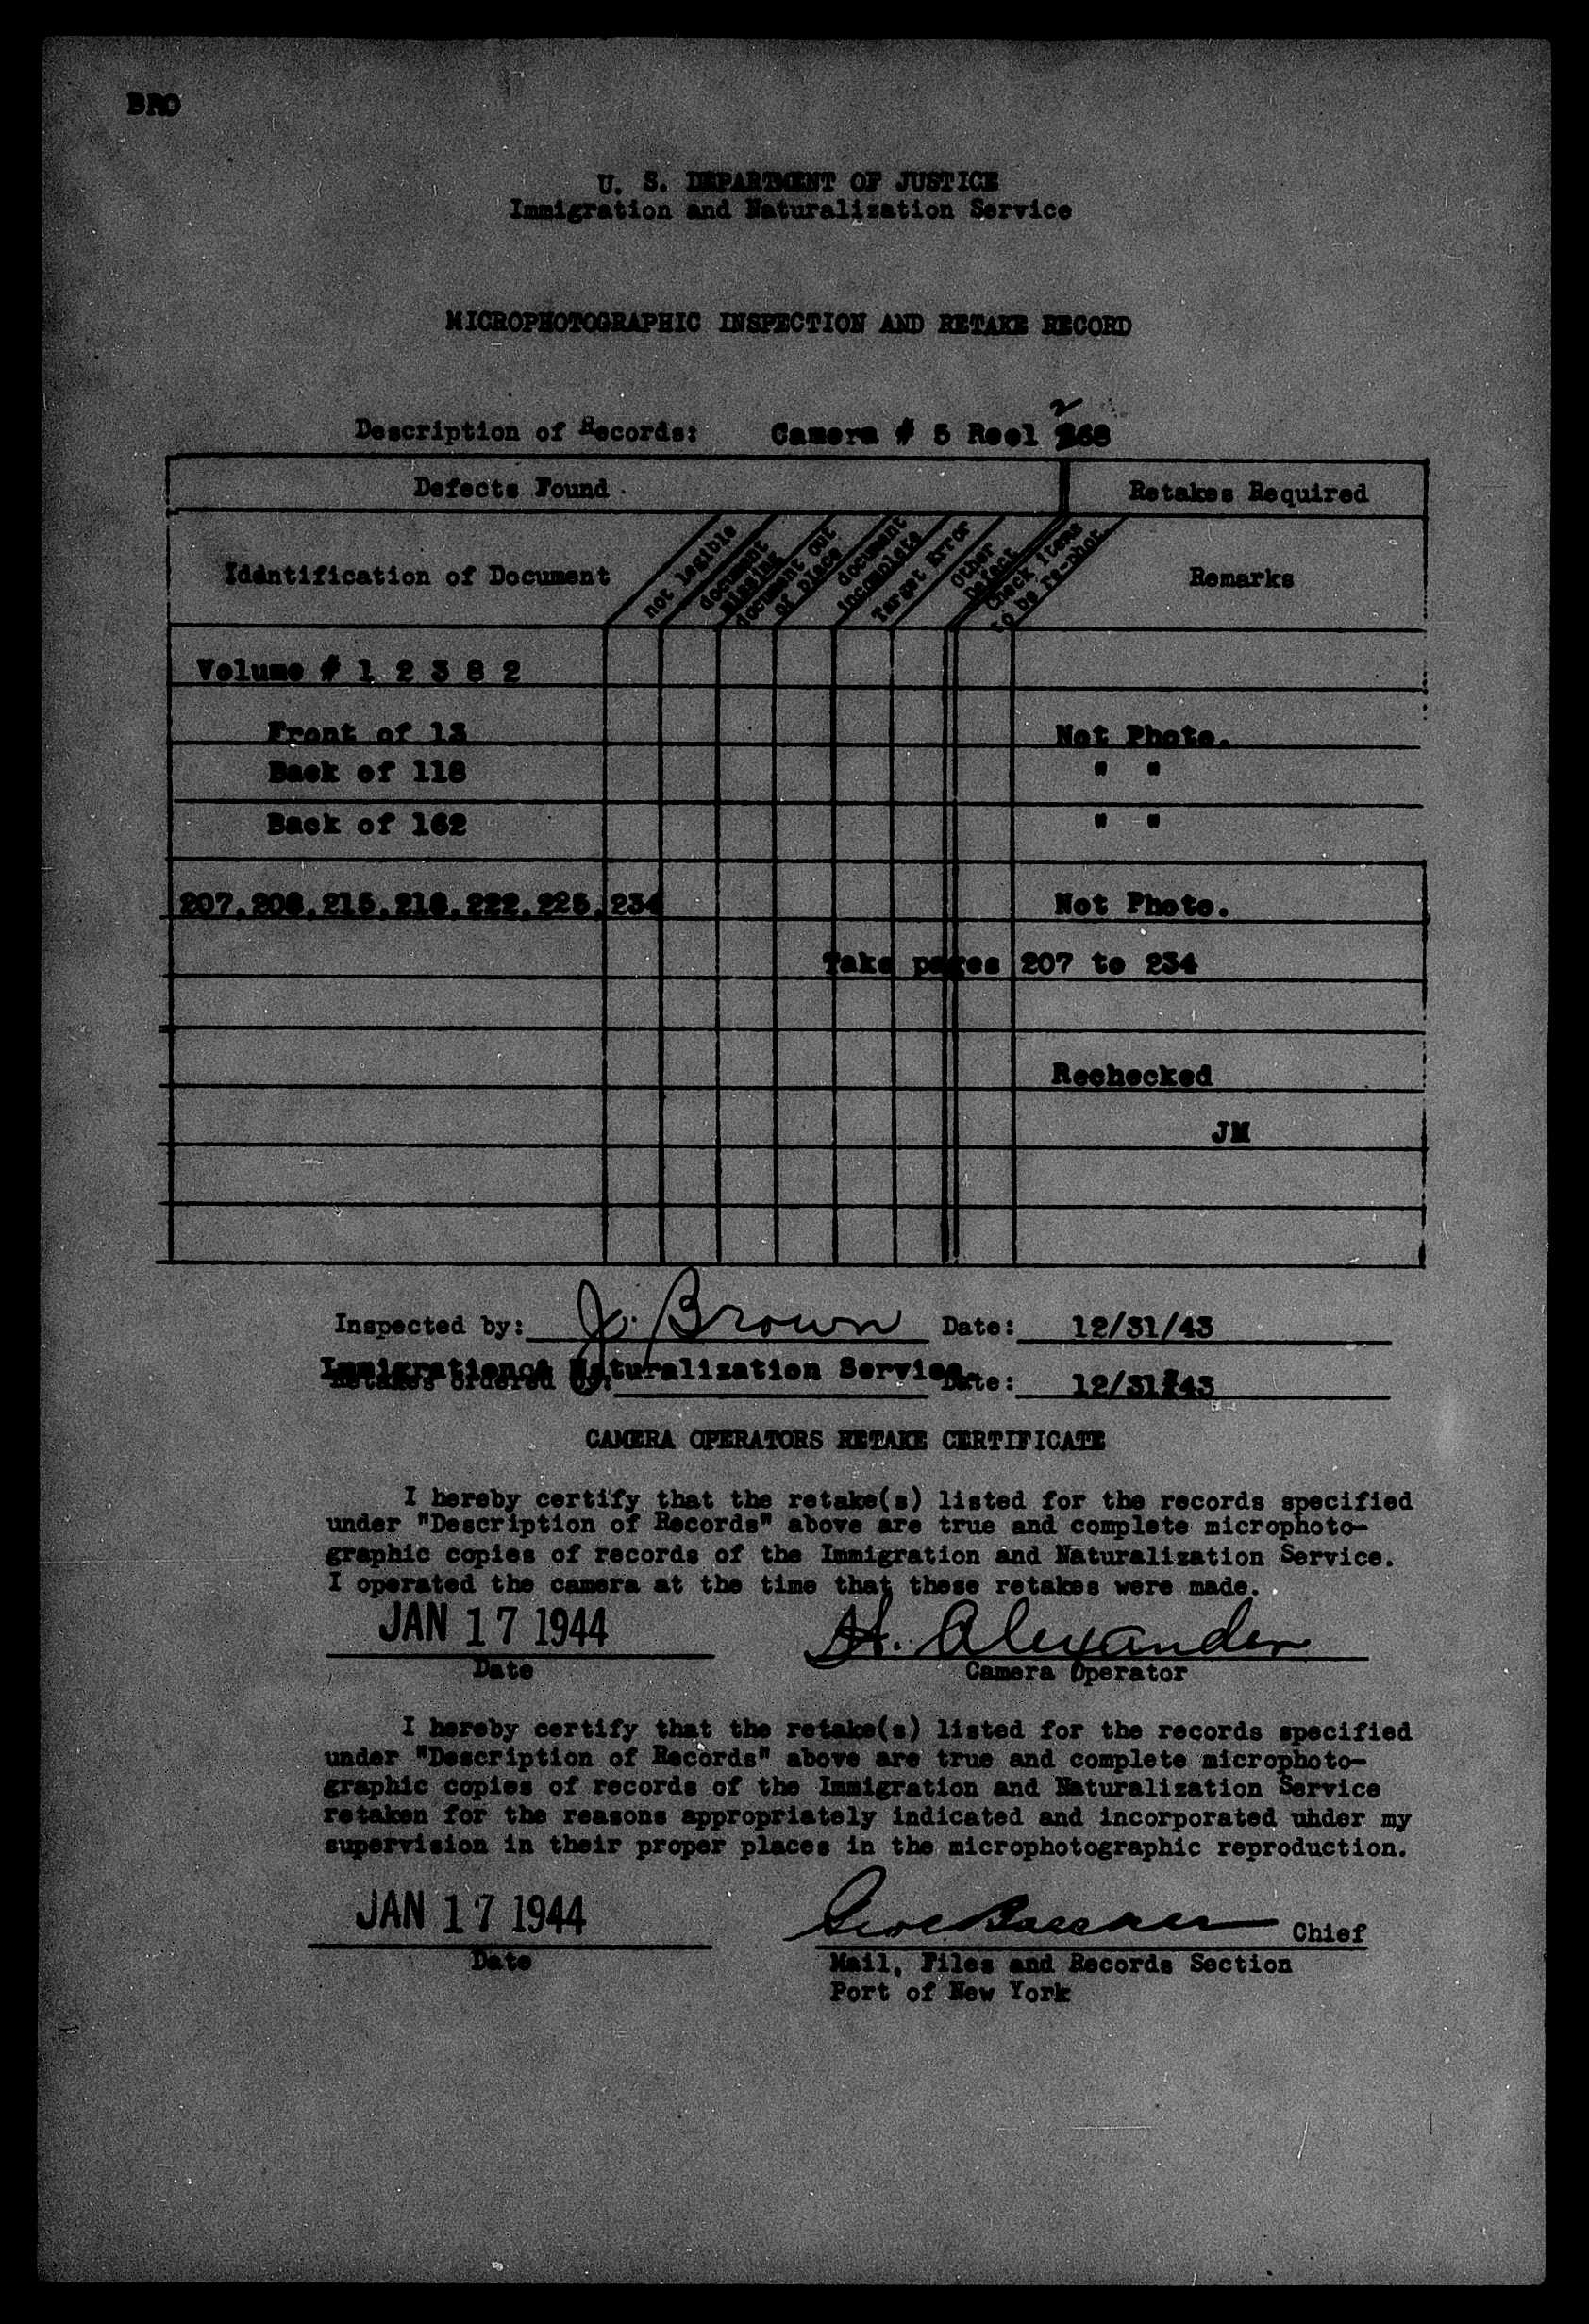 BRO
U. S. DEPARTMENT OF JUSTICE
Immigration and Naturalization Service
MICROPHOTOGRAPHIC INSPECTION AND RETAKE RECORD
Description of Records: Camera # 5 Reel 268
2
Defects Found
Retakes Required
Identification of Document
not legible
document missing
document out of place
document incomplete
Target Error
Other Defect
Check items to be re-phot.
Remarks
Volume # 1 2 3 8 2
Front of 13 Not Photo.
Back of 118 " "
Back of 162 " "
207,208,215,218,222,225,234 Not Photo.
Take pages 207 to 234
Rechecked
JM
Inspected by: J. Brown Date: 12/31/43
Immigration & Naturalization Service
Retakes ordered by: Date: 12/31/43
CAMERA OPERATORS RETAKE CERTIFICATE
I hereby certify that the retake(s) listed for the records specified
under "Description of Records" above are true and complete microphoto-
graphic copies of records of the Immigration and Naturalization Service.
I operated the camera at the time that these retakes were made.
JAN 17 1944 H. Alexander
Date Camera Operator
I hereby certify that the retake(s) listed for the records specified
under "Description of Records" above are true and complete microphoto-
graphic copies of records of the Immigration and Naturalization Service
retaken for the reasons appropriately indicated and incorporated under my
supervision in their proper places in the microphotographic reproduction.
JAN 17 1944 Chief
Date Mail, Files and Records Section
Port of New York